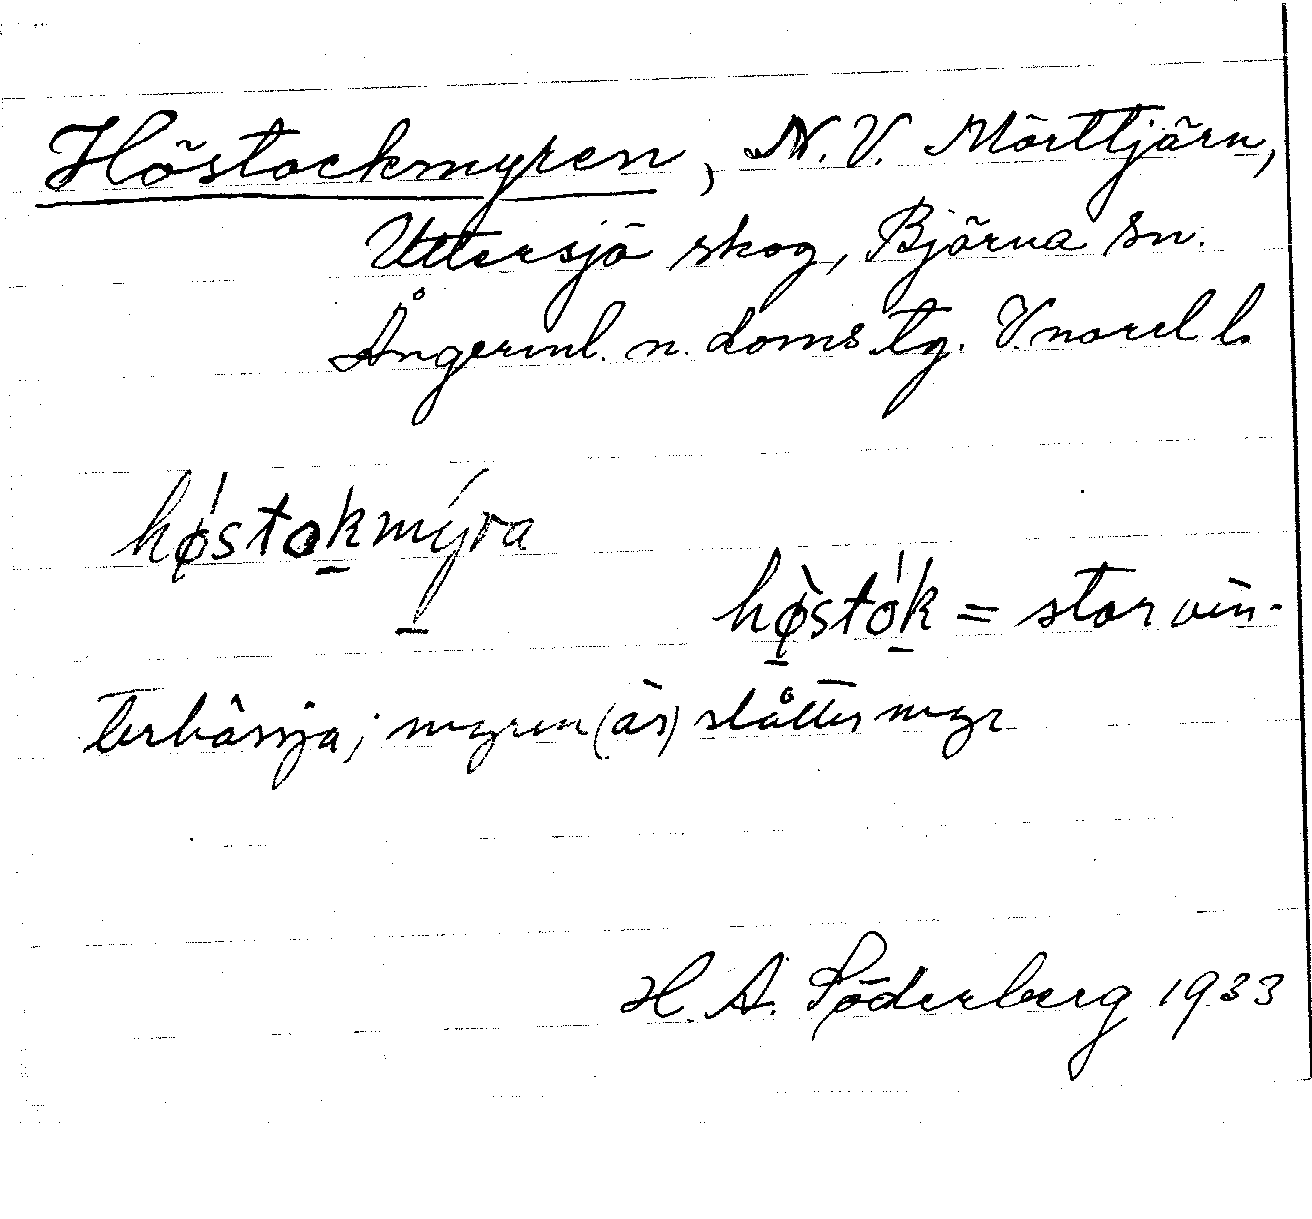 Höstackmyren, N.V. Mörttjärn,
Uttersjö skog, Björna sn.
Ångerml. n. doms tg. V.norrl l.
hǿstokmýra
hø̀stók = stor vin-
terhässja; myren (är) slåttesmyr
H. A. Söderberg 1933